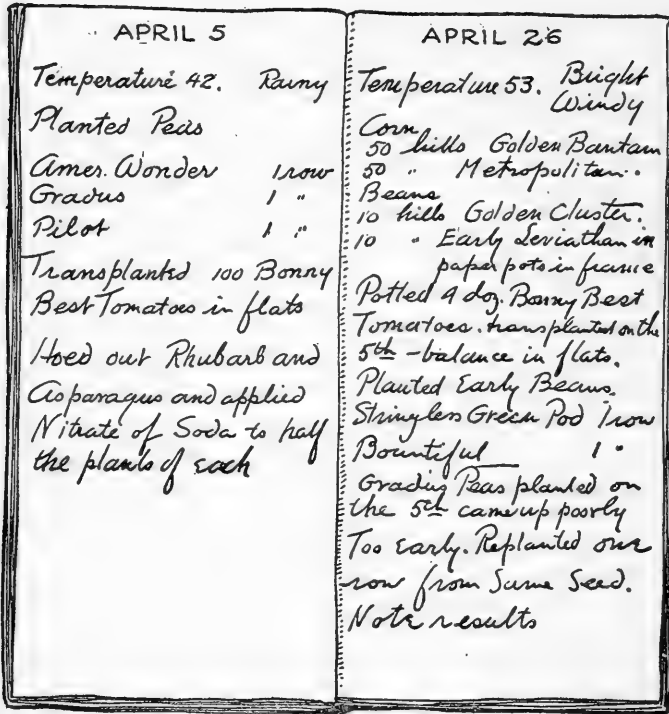 APRIL 5
Temperature 42. Rainy
Planted Peas
Amer. Wonder 1 row
Gradus 1 "
Pilot 1 "
Transplanted 100 Bonny
Best Tomatoes in flats
Hoed out Rhubarb and
Asparagus and applied
Nitrate of Soda to half
the plants of each
APRIL 26
Temperature 53. Bright
Windy
Corn
50 hills Golden Bantam
50 " Metropolitan.
Beans
10 hills Golden Cluster.
10 " Early Leviathan in
paper pots in frame
Potted 4 doz. Bonny Best
Tomatoes. transplanted on the
5th - balance in flats.
Planted Early Beans.
Stringless Green Pod 1 row
Bountiful 1 "
Gradus Peas planted on
the 5th came up poorly
Too Early. Replanted one
row from Same Seed.
Note results